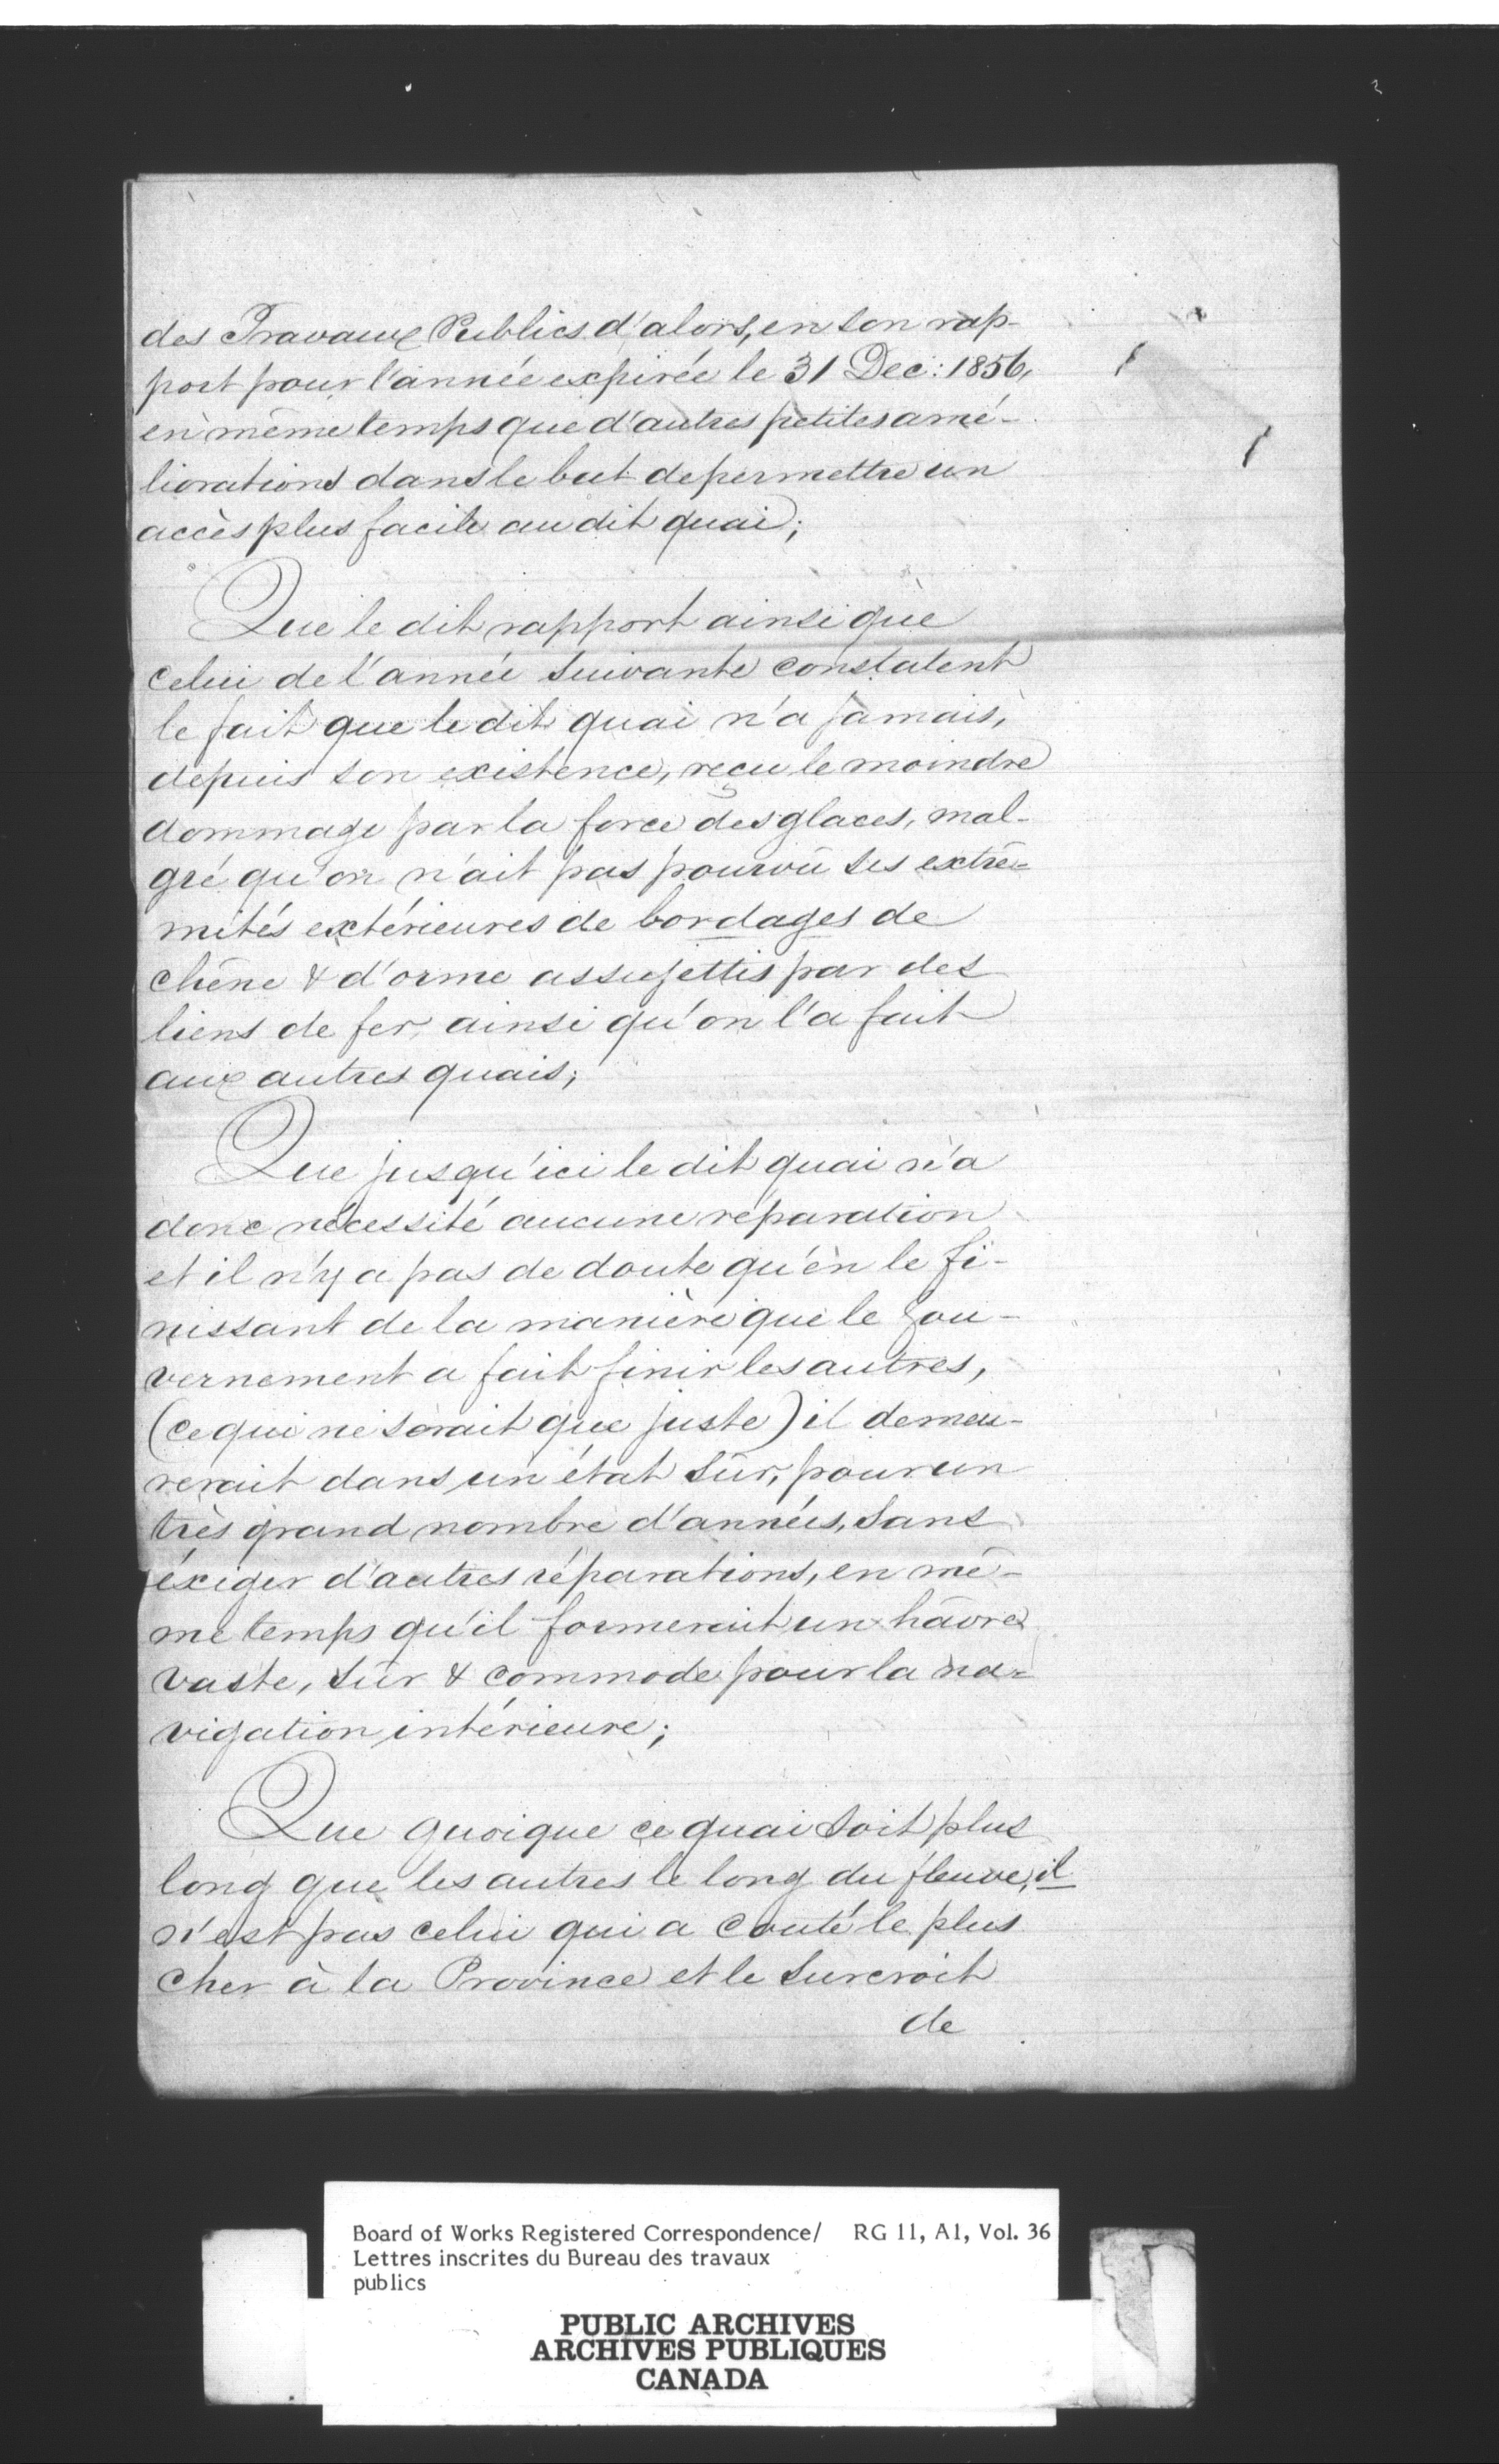 des Travaux Publics d'alors, en son rap-
port pour l'année expirée le 31 Dec: 1856,
en même temps que d'autres petites amé-
liorations dans le but de permettre un
accès plus facile au dit quai;
Que le dit rapport ainsi que
celui de l'année suivante constatent
le fait que le dit quai n'a jamais,
depuis son existence, reçu le moindre
dommage par la force des glaces, mal-
gré qu'on n'ait pas pourvû ses extrê=
mités extérieures de bordages de
chêne & d'orme assujettis par des
liens de fer, ainsi qu'on l'a fait
aux autres quais;
Que jusqu'ici le dit quai n'a
donc nécessité aucune réparation
et il n'y a pas de doute qu'en le fi-
nissant de la manière que le Gou-
vernement a fait finir les autres,
(ce qui ne serait que juste) il demeu-
rerait dans un état sûr, pour un
très grand nombre d'années, sans
éxiger d'autres réparations, en mê-
me temps qu'il formerait un hâvre
vaste, sûr & commode pour la na=
vigation intérieure;
Que quoique ce quai soit plus
long que les autres le long du fleuve, il
n'est pas celui qui a couté le plus
cher à la Province et le surcroit
de
Board of Works Registered Correspondence/ RG 11, A1, Vol. 36
Lettres inscrites du Bureau des travaux
publics
PUBLIC ARCHIVES
ARCHIVES PUBLIQUES
CANADA